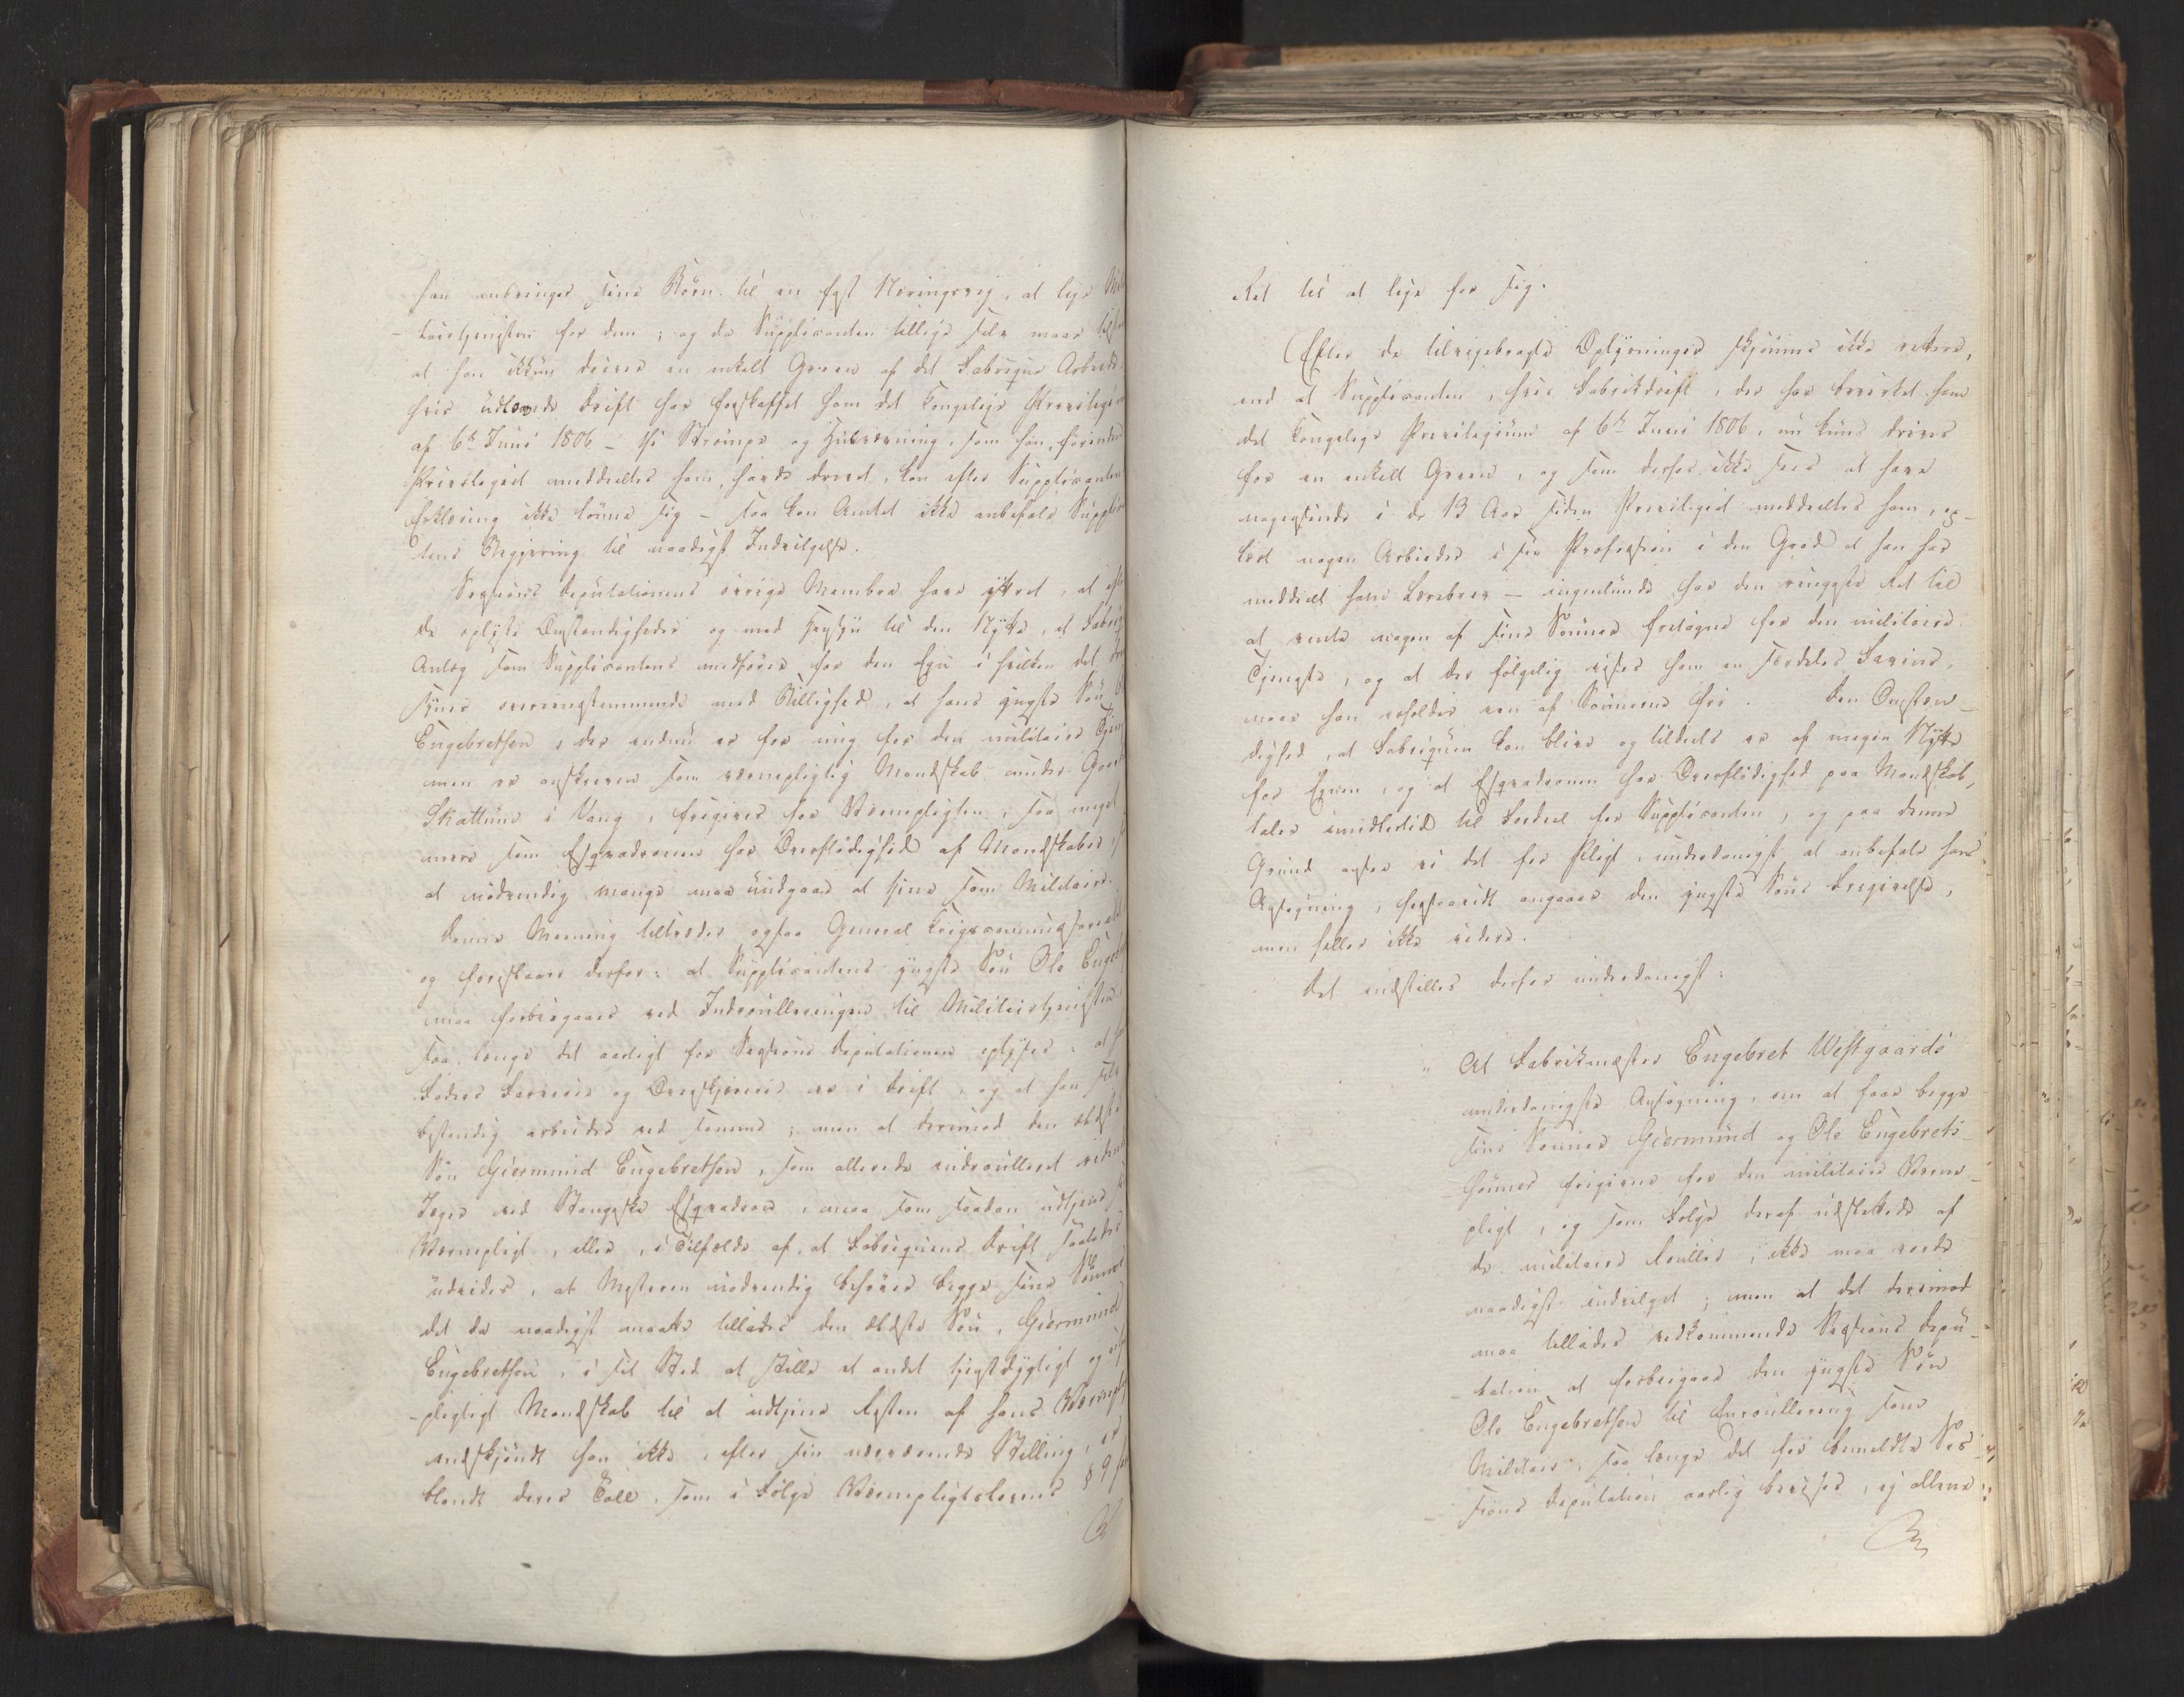 han anbringer sine Børn til en fast Næringsvej, at leje Mili
-tairtjenesten for dem; og da Supplicanten tillige selv maae tilstaa
at han ikkun driver en enkelt Green af det Fabrique Arbeide
hvis udlovede Drift har forskaffet ham det kongelige Privilegium
af 6te Juni 1806 – thi Strømpe og Huevævning, som han, førinden
Privilegiet meddeeltes ham, havde drevet, kan efter Supplicantens
Erklæring ikke lønne sig – saa kan Amtet ikke anbefale Supplican
tens Begjæring til naadigst Indvilgelse.
Sessions Deputationens øvrige Membra have yttret, at efter
de oplyste Omstændigheder og med Hensyn til den Nytte, et Fabrik
Anlæg som Supplicantens medfører for den Egn i hvilken det drives
synes overeensstemmende med Billighed, at hans yngste Søn Ole
Engebretsen, der endnu er for ung for den militaire Tjeneste
men er anskreven som værnepligtig Mandskab under Gaarden
Skattum i Vang, frigives for Værnepligten, saa meget
mere som Esqvadronen har Overflødighed af Mandskaber,
at nødvendig mange maa undgaae at tjene som Militaire.
Denne Meening tiltræder ogsaa General Krigscommissariatet
og foreslaaer derfor: at Supplicantens yngste Søn Ole Engebretsen
maa forbigaaes ved Indroulleringen til Militairtjenesten
saa længe det aarligt for Sessions Deputationen oplyses: at hans
Faders Farverie og Overskjæreri er i Drift, og at han selv
bestandig arbeider ved samme; men at derimod den ældste
Søn Giermund Engebretsen, som allerede indroulleret ridende
Jæger ved Stangeske Esqvadron, maa som saadan udtjene sin
Værnepligt, eller, i Tilfælde af, at Fabriquens Drift saaledes
udvides, at Mesteren nødvendig behøver begge sine Sønner
det da naadigst maatte tillades den ældste Søn, Giermund
Engebretsen, i sit Sted at stille et andet tjenstdygtigt og ikke
-pligtigt Mandskab til at udtjene Resten af hans Værnepligt
endskjøndt han ikke, efter sin nærværende Stilling, er
blandt deres Tall, som i Følge Værnepligtslovens § 9 har
Ret til at leje for sig.
Efter de tilvejebragte Oplysninger skjønnes ikke rettere,
end at Supplicanten, hvis Fabrikdrift, der har bevirket ham
det kongelige Privilegium af 6te Juni 1806, nu kuns drives
for en enkelt Green, og som derfor ikke sees at have
nogensinde i de 13 Aar siden Privilegiet meddeeltes ham, op-
lært nogen Arbeider i sin Profession i den Grad at han har
meddeelt ham Lærebrev – ingenlunde har den ringeste Ret til
at vente nogen af sine Sønner fritagne for den militaire
Tjeneste, og at der følgelig vises ham en særdeles Favør,
naar han erholder een af Sønnerne fri. Den Omstæn-
dighed, at Fabriquen kan blive og tildeels er af megen Nytte
for Egnen, og at Esqvadronen har Overflødighed paa Mandskab,
taler imidlertid til Fordeel for Supplicanten, og paa denne
Grund agter vi det for Pligt, underdanigst at anbefale hans
Ansøgning, forsaavidt angaaer den yngste Søns Frigivelse,
men heller ikke videre.
Det indstilles derfor underdanigst:
" At Fabrikmester Engebret Westgaards
underdanigste Ansøgning, om at faae begge
sine Sønner Giermund og Ole Engebrets-
-sønner frigivne for den militaire Værne-
pligt, og som Følge deraf udslettede af
de militaire Rouller, ikke maa vorde
naadigst indvilget; men at det derimod
maa tillades vedkommende Sessions Depu-
-tation at forbigaae den yngste Søn
Ole Engebretsen til Enroullering som
Militair, saa længe det for bemeldte Ses-
-sions Deputation aarlig bevises, ej allene